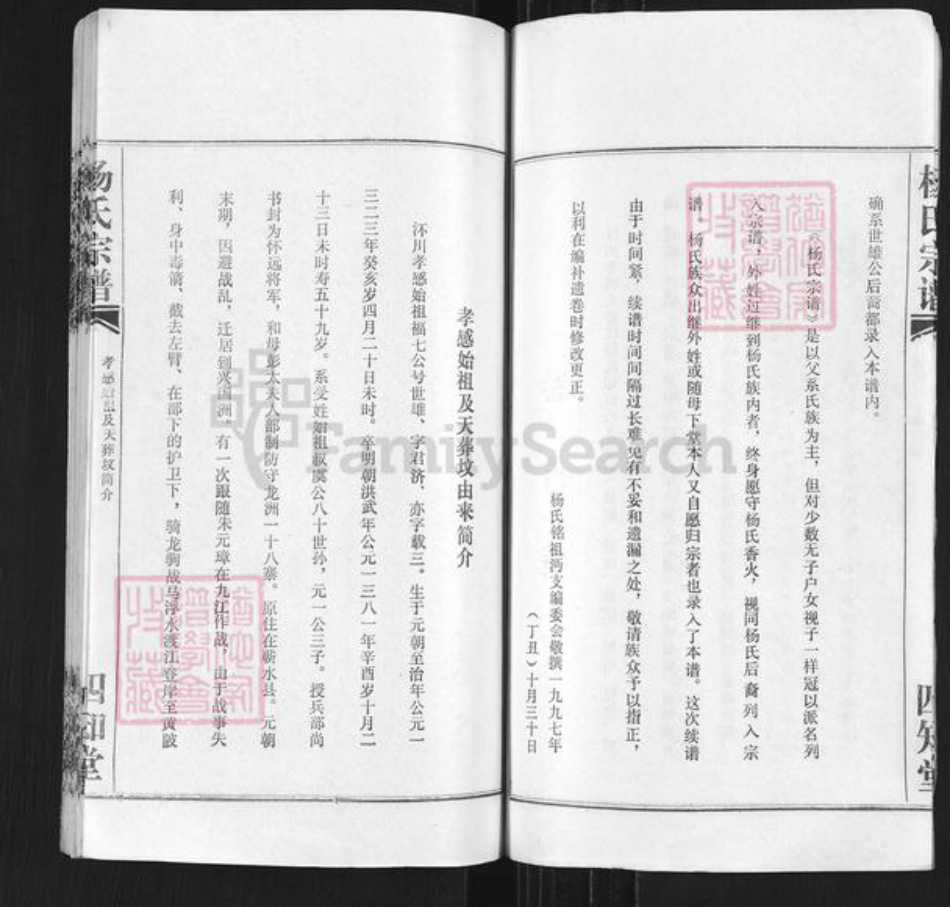 杨氏宗谱
四知堂
确系世雄公后裔都录入本谱内。
《杨氏宗谱》是以父系氏族为主，但对少数无子户女视子一样冠以派名列
入宗谱，外姓过继到杨氏族内者，终身愿守杨氏香火，视同杨氏后裔列入宗
谱。杨氏族众出继外姓或随母下堂本人又自愿归宗者也录入了本谱。这次续谱
由于时间紧，续谱时间间隔过长难免有不妥和遗漏之处，敬请族众予以指正，
以利在编补遗卷时修改更正。
杨氏铭祖沔支编委会敬撰一九九七年
（丁丑）十月三十日
孝感始祖及天葬坟由来简介
沵川孝感始祖福七公号世雄、字君济、亦字载三。生于元朝至治年公元一
三二三年癸亥岁四月二十日未时。卒明朝洪武年公元一三八一年辛酉岁十月二
十三日未时寿五十九岁。系受姓始祖叔虞公八十世孙，元一公三子。授兵部尚
书封为怀远将军，和母彭太夫人部制防守龙洲一十八寨。原住在蕲水县。元朝
末期，因避战乱，迁居到兴国洲。有一次跟随朱元璋在九江作战，由于战事失
利、身中毒箭、截去左臂、在部下的护卫下，骑龙驹战马浮水渡江登岸至黄陂
杨氏宗谱
孝感始祖及天葬坟简介
四知堂
FamilySearch